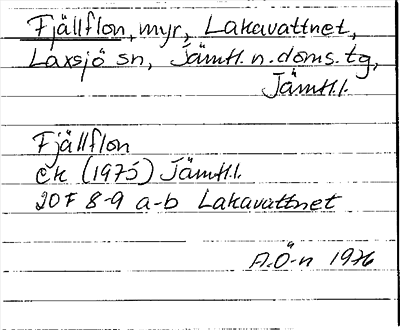 Fjällflon, myr, Lakavattnet,
Laxsjö sn, Jämtl. n. doms. tg,
Jämtl.l.
Fjällflon
ek (1975) Jämtl.l.
20F 8-9 a-b Lakavattnet
A.Ö-n 1976